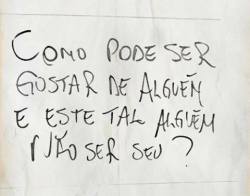 COMO PODE SER
GOSTAR DE ALGUÉM
E ESTE TAL ALGUÉM
NÃO SER SEU?